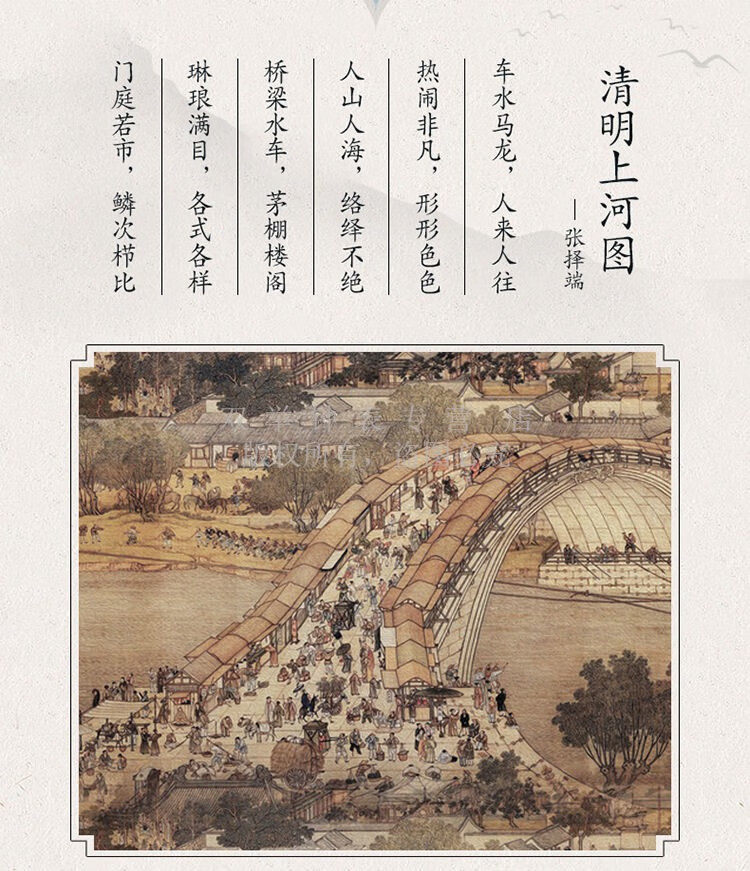 清明上河图
—张择端
车水马龙，人来人往
热闹非凡，形形色色
人山人海，络绎不绝
桥梁水车，茅棚楼阁
琳琅满目，各式各样
门庭若市，鳞次栉比
专营店
版权所有，盗